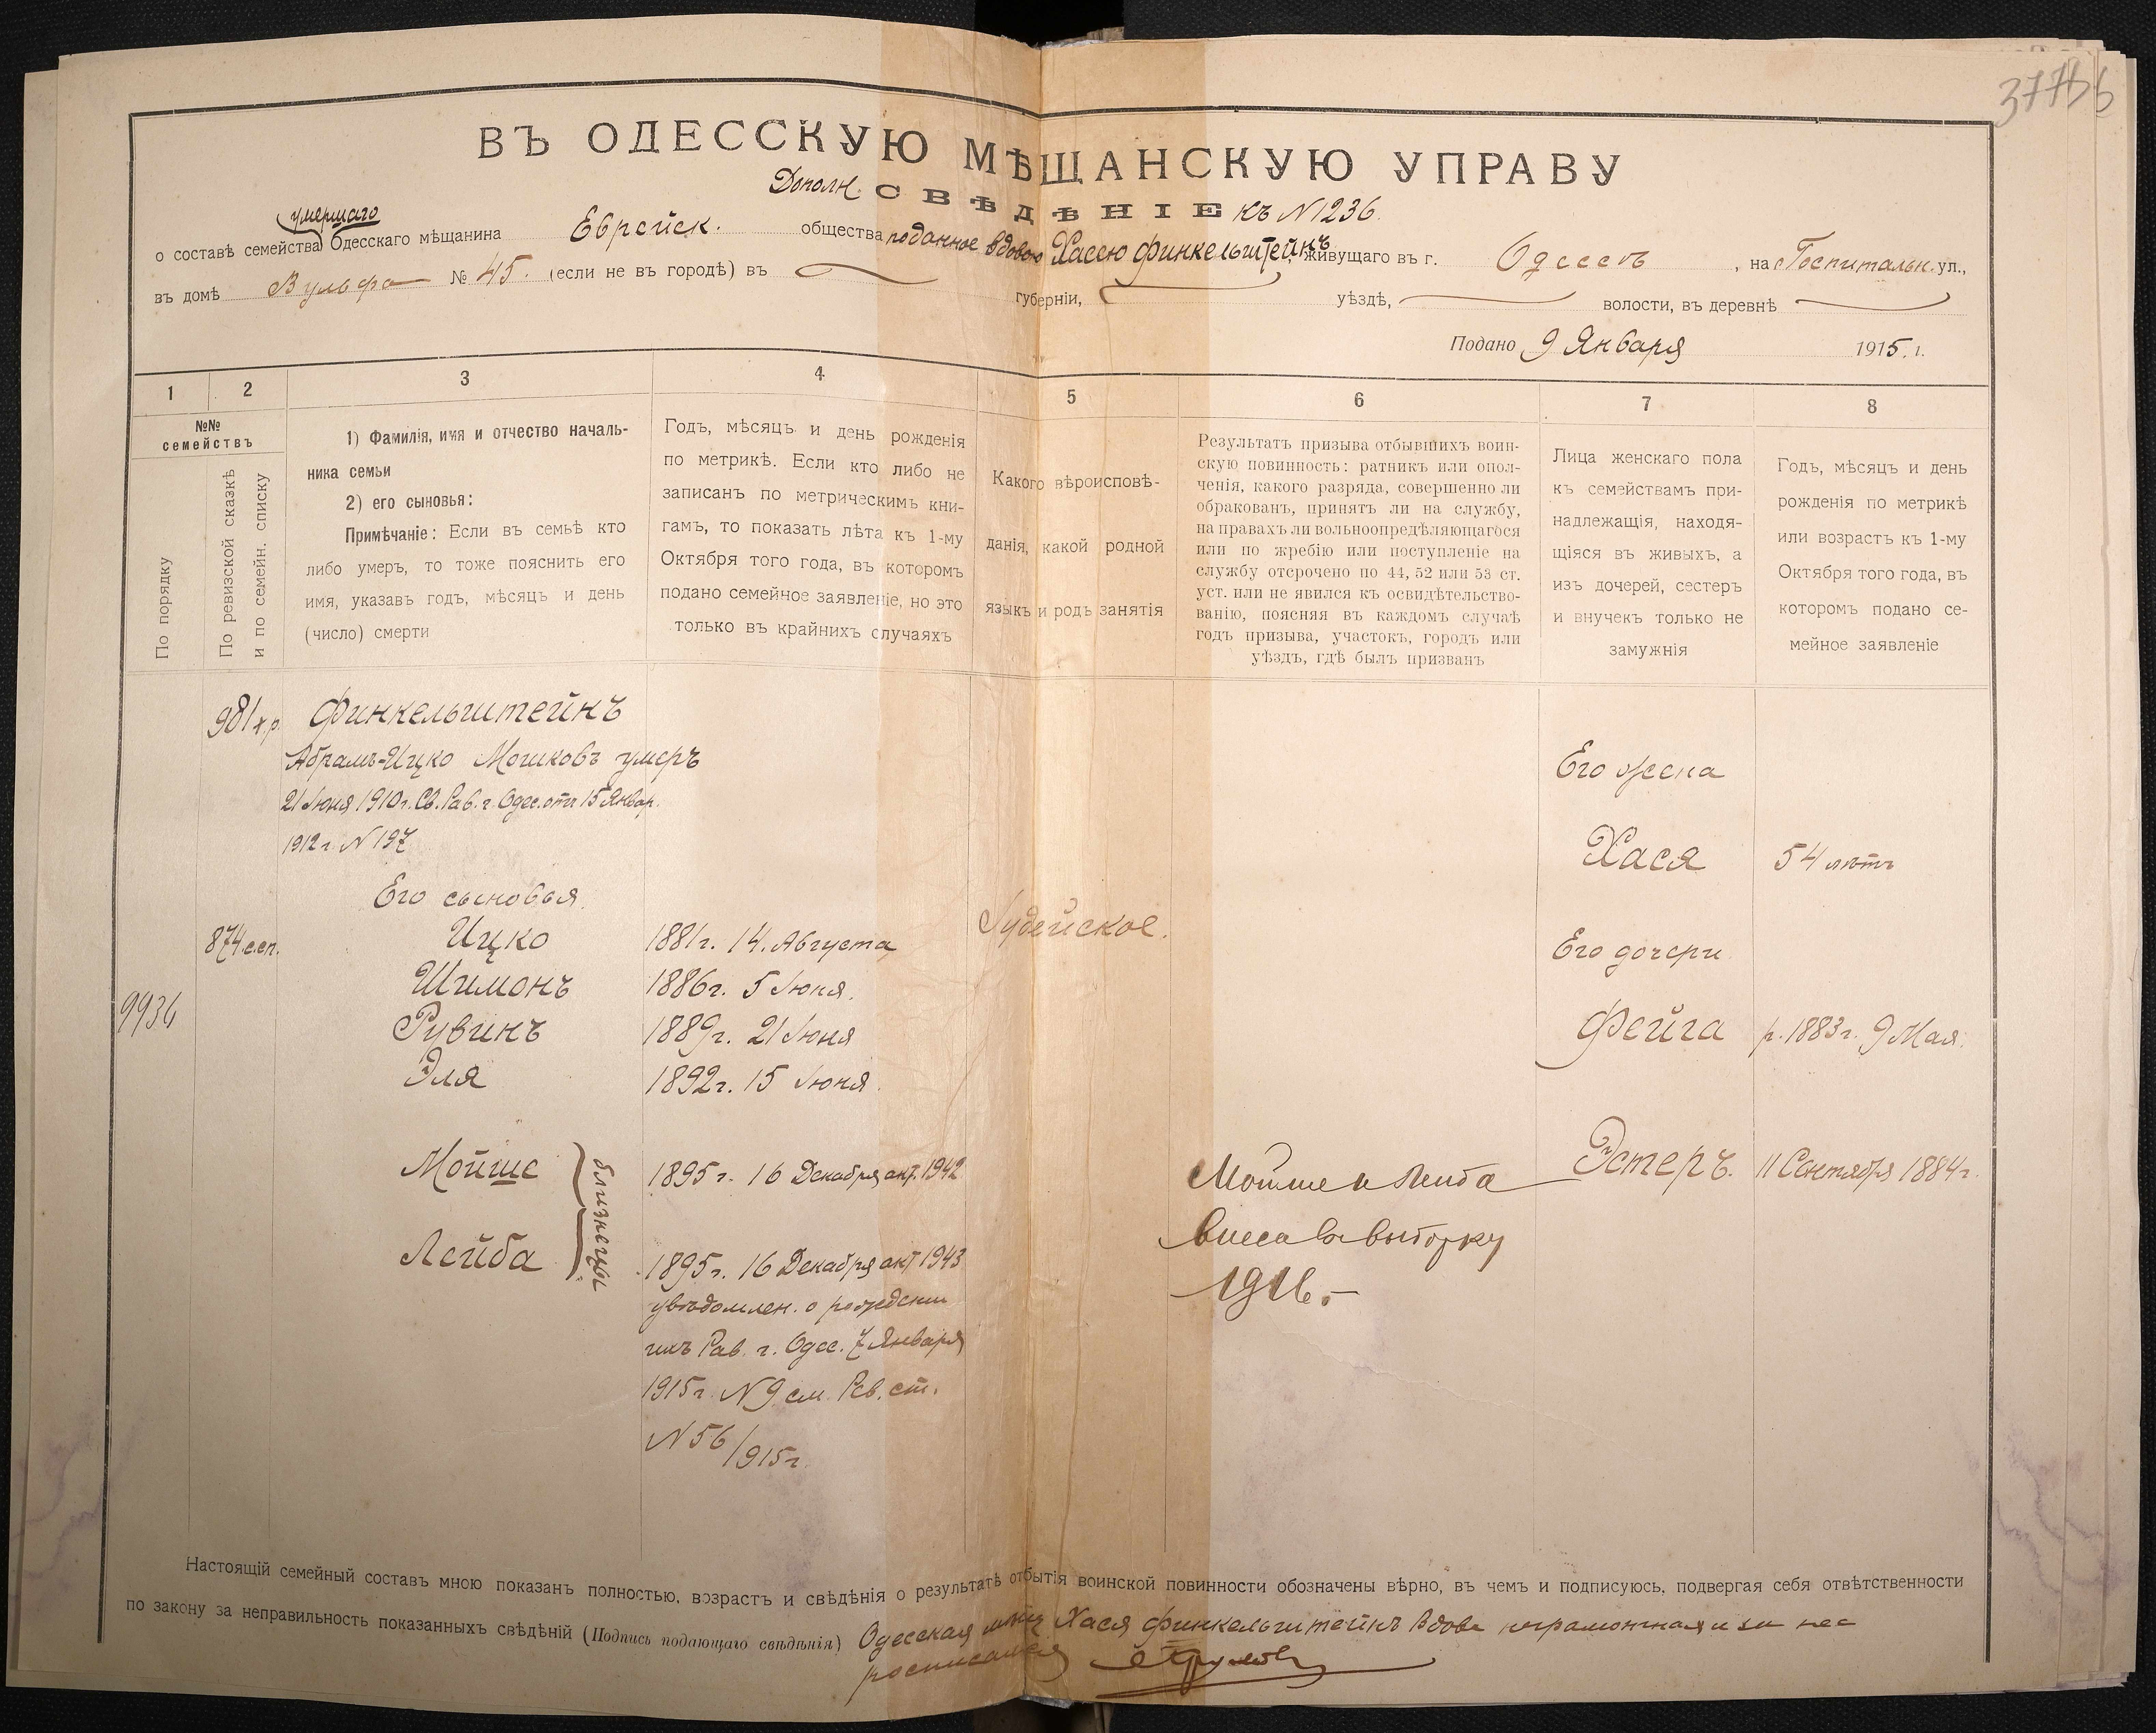 37756
ВЪ ОДЕССКУЮ МѢЩАНСКУЮ УПРАВУ
Дополн. СВѢДѢНІЕ къ N 1236.
умершаго
о составѣ семейства Одесскаго мѣщанина Еврейск. общества поданное вдовою Хасею Финкельштейнъ, живущаго въ г. Одессѣ, на Госпитальн. ул.,
въ домѣ Вульфа № 45. (если не въ городѣ) въ губерніи, уѣздѣ, волости, въ деревнѣ
Подано 9 Января 1915. г.
1 2 3 4 5 6 7 8
№№ семействъ
По порядку
По ревизской сказкѣ
и по семейн. списку
1) Фамилія, имя и отчество началь-
ника семьи
2) его сыновья:
Примѣчаніе: Если въ семьѣ кто
либо умеръ, то тоже пояснить его
имя, указавъ годъ, мѣсяцъ и день
(число) смерти
Годъ, мѣсяцъ и день рожденія
по метрикѣ. Если кто либо не
записанъ по метрическимъ кни-
гамъ, то показать лѣта къ 1-му
Октября того года, въ которомъ
подано семейное заявленіе, но это
только въ крайнихъ случаяхъ
Какого вѣроисповѣ-
данія, какой родной
языкъ и родъ занятія
Результатъ призыва отбывшихъ воин-
скую повинность: ратникъ или опол-
ченія, какого разряда, совершенно ли
обракованъ, принятъ ли на службу,
на правахъ ли вольноопредѣляющагося
или по жребію или поступленіе на
службу отсрочено по 44, 52 или 53 ст.
уст. или не явился къ освидѣтельство-
ванію, поясняя въ каждомъ случаѣ
годъ призыва, участокъ, городъ или
уѣздъ, гдѣ былъ призванъ
Лица женскаго пола
къ семействамъ при-
надлежащія, находя-
щіяся въ живыхъ, а
изъ дочерей, сестеръ
и внучекъ только не
замужнія
Годъ, мѣсяцъ и день
рожденія по метрикѣ
или возрастъ къ 1-му
Октября того года, въ
которомъ подано се-
мейное заявленіе
981 х.р. Финкельштейнъ
Абрамъ-Ицко Мошковъ умеръ
21 Іюня 1910 г. Св. Рав. г. Одес. отъ 15 Январ.
1912 г. N 197
Его жена
Хася 54 лѣтъ
Его сыновья
874 с.сп. Ицко 1881 г. 14. Августа Іудейское.
Его дочери
Шимонъ 1886 г. 5 Іюня.
9936
Рувинъ 1889 г. 21 Іюня
Фейга р. 1883 г. 9 Мая.
Эля 1892 г. 15 Іюня.
Мойше 1895 г. 16 Декабря акт. 1942
близнецы
Мойше и Лейба
Эстеръ. 11 Сентября 1884 г.
Лейба 1895 г. 16 Декабря акт 1943
внесе въ выборку
1916.
увѣдомлен. о рожденіи
ихъ Рав. г. Одес. 7 Января
1915 г. N 9 см. Рев. ст.
N 56/915 г.
Настоящій семейный составъ мною показанъ полностью, возрастъ и свѣдѣнія о результатѣ отбытія воинской повинности обозначены вѣрно, въ чемъ и подписуюсь, подвергая себя отвѣтственности
по закону за неправильность показанныхъ свѣдѣній (Подпись подающаго свѣдѣнія) Одесская мѣщ Хася Финкельштейнъ вдова неграмотная и за нее
росписался